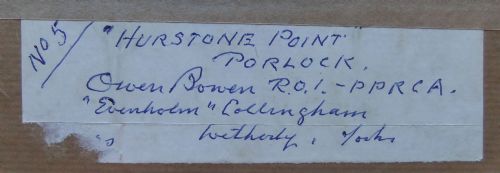 No 5
"HURSTONE POINT"
PORLOCK.
Owen Bowen R.O.I. - PPRCA.
"Evenholm" Collingham
Wetherby, Yorks